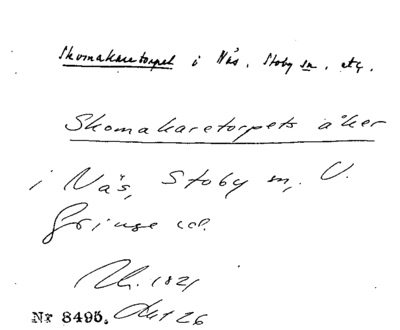 Skomakaretorpet i Näs, Stoby sn. etc.
Skomakaretorpets åker
i Näs, Stoby sn, V.
Göinge hd.
1821
Nr 8495. Akt 26